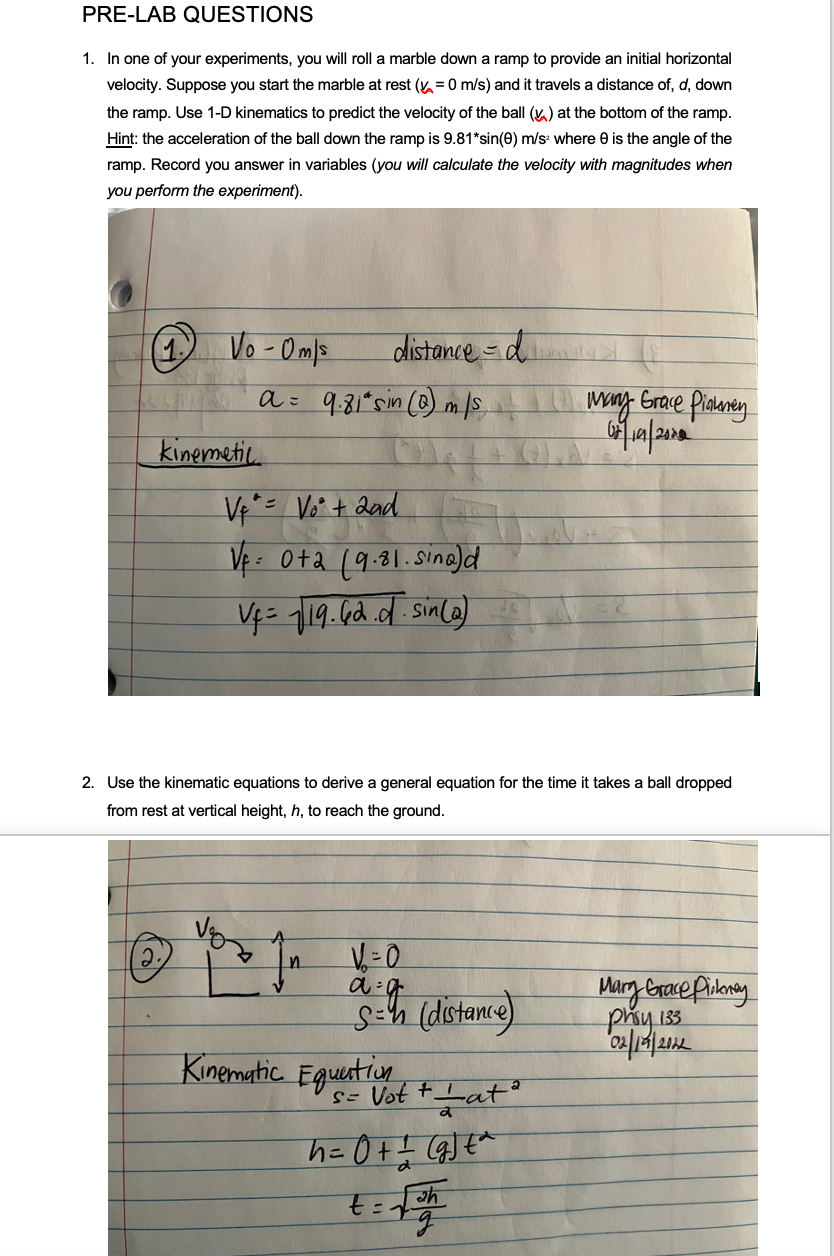 PRE-LAB QUESTIONS
1. In one of your experiments, you will roll a marble down a ramp to provide an initial horizontal
velocity. Suppose you start the marble at rest (v = 0 m/s) and it travels a distance of, d, down
the ramp. Use 1-D kinematics to predict the velocity of the ball (v) at the bottom of the ramp.
Hint: the acceleration of the ball down the ramp is 9.81*sin(θ) m/s² where θ is the angle of the
ramp. Record you answer in variables (you will calculate the velocity with magnitudes when
you perform the experiment).
1. Vo - 0 m/s distance = d
a = 9.81*sin(θ) m/s
Mary Grace
kinemetic
Vf² = Vo² + 2ad
Vf = 0+2 (9.81 . sinθ)d
Vf = √19.62 .d . sin(θ)
2. Use the kinematic equations to derive a general equation for the time it takes a ball dropped
from rest at vertical height, h, to reach the ground.
2. V0 n V₀ = 0
a = g
S = h (distance)
Mary Grace
phsy 133
Kinematic Equation
s = Vot + 1/2 at²
h = 0 + 1/2 (g) t²
t = √2h/g